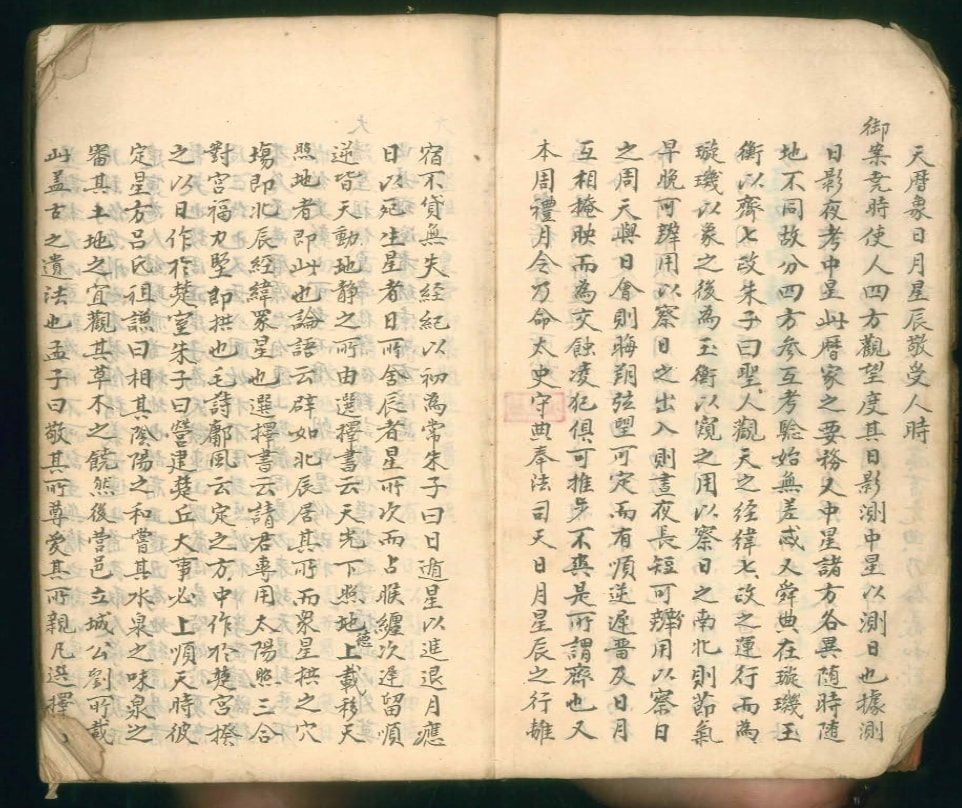 天曆象日月星辰敬受人時
御案尭時使人四方觀望度其日影測中星以測日也據測
日影夜考中星此曆家之要務又中星諸方各異随時随
地不同故分四方参互考驗始無差忒又舜典在璇璣玉
衡以齊七政朱子曰聖人觀天之経緯七政之運行而為
璇璣以象之後為玉衡以窺之用以察日之南北則節氣
早晚可辨用以察日之出入則晝夜長短可辨用以察日
之周天與日會則晦朔弦望可定而有順逆遲晋及日月
互相掩映而為交蝕凌犯俱可推步不爽是所謂齊也又
本周禮月令乃命太史守典奉法司天日月星辰之行離
宿不貸無失経紀以初為常朱子曰日遁星以進退月應
日以死生星者日所舍辰者星所次而占候纏次遲留順
逆皆天動地静之所由選擇書云天光下照地德上載移天
照地者即此也論語云辟如北辰居其所而衆星拱之穴
塲即北辰経緯衆星也選擇書云諸君專用太陽照三合
對宮福力堅即拱也毛詩鄘風云定之方中作於楚宮揆
之以日作於楚室朱子曰營建楚丘大事必上順天時彼
定星方呂氏祖謙曰相其陰陽之和嘗其水泉之味泉之
審其土地之宜觀其草木之饒然後營邑立城公劉所載
此盖古之遺法也孟子曰敬其所尊愛其所親凡選擇